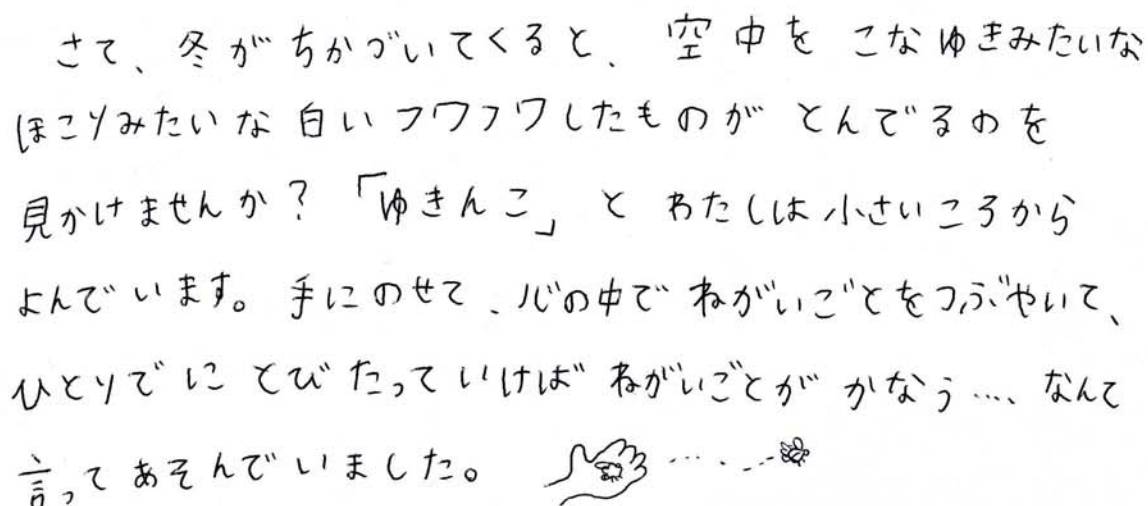 さて、冬がちかづいてくると、空中を こなゆきみたいな
ほこりみたいな白いフワフワしたものが とんでるのを
見かけませんか？「ゆきんこ」と わたしは小さいころから
よんでいます。手にのせて、心の中で ねがいごとをつぶやいて、
ひとりでに とびたっていけば ねがいごとが かなう…、なんて
言ってあそんでいました。